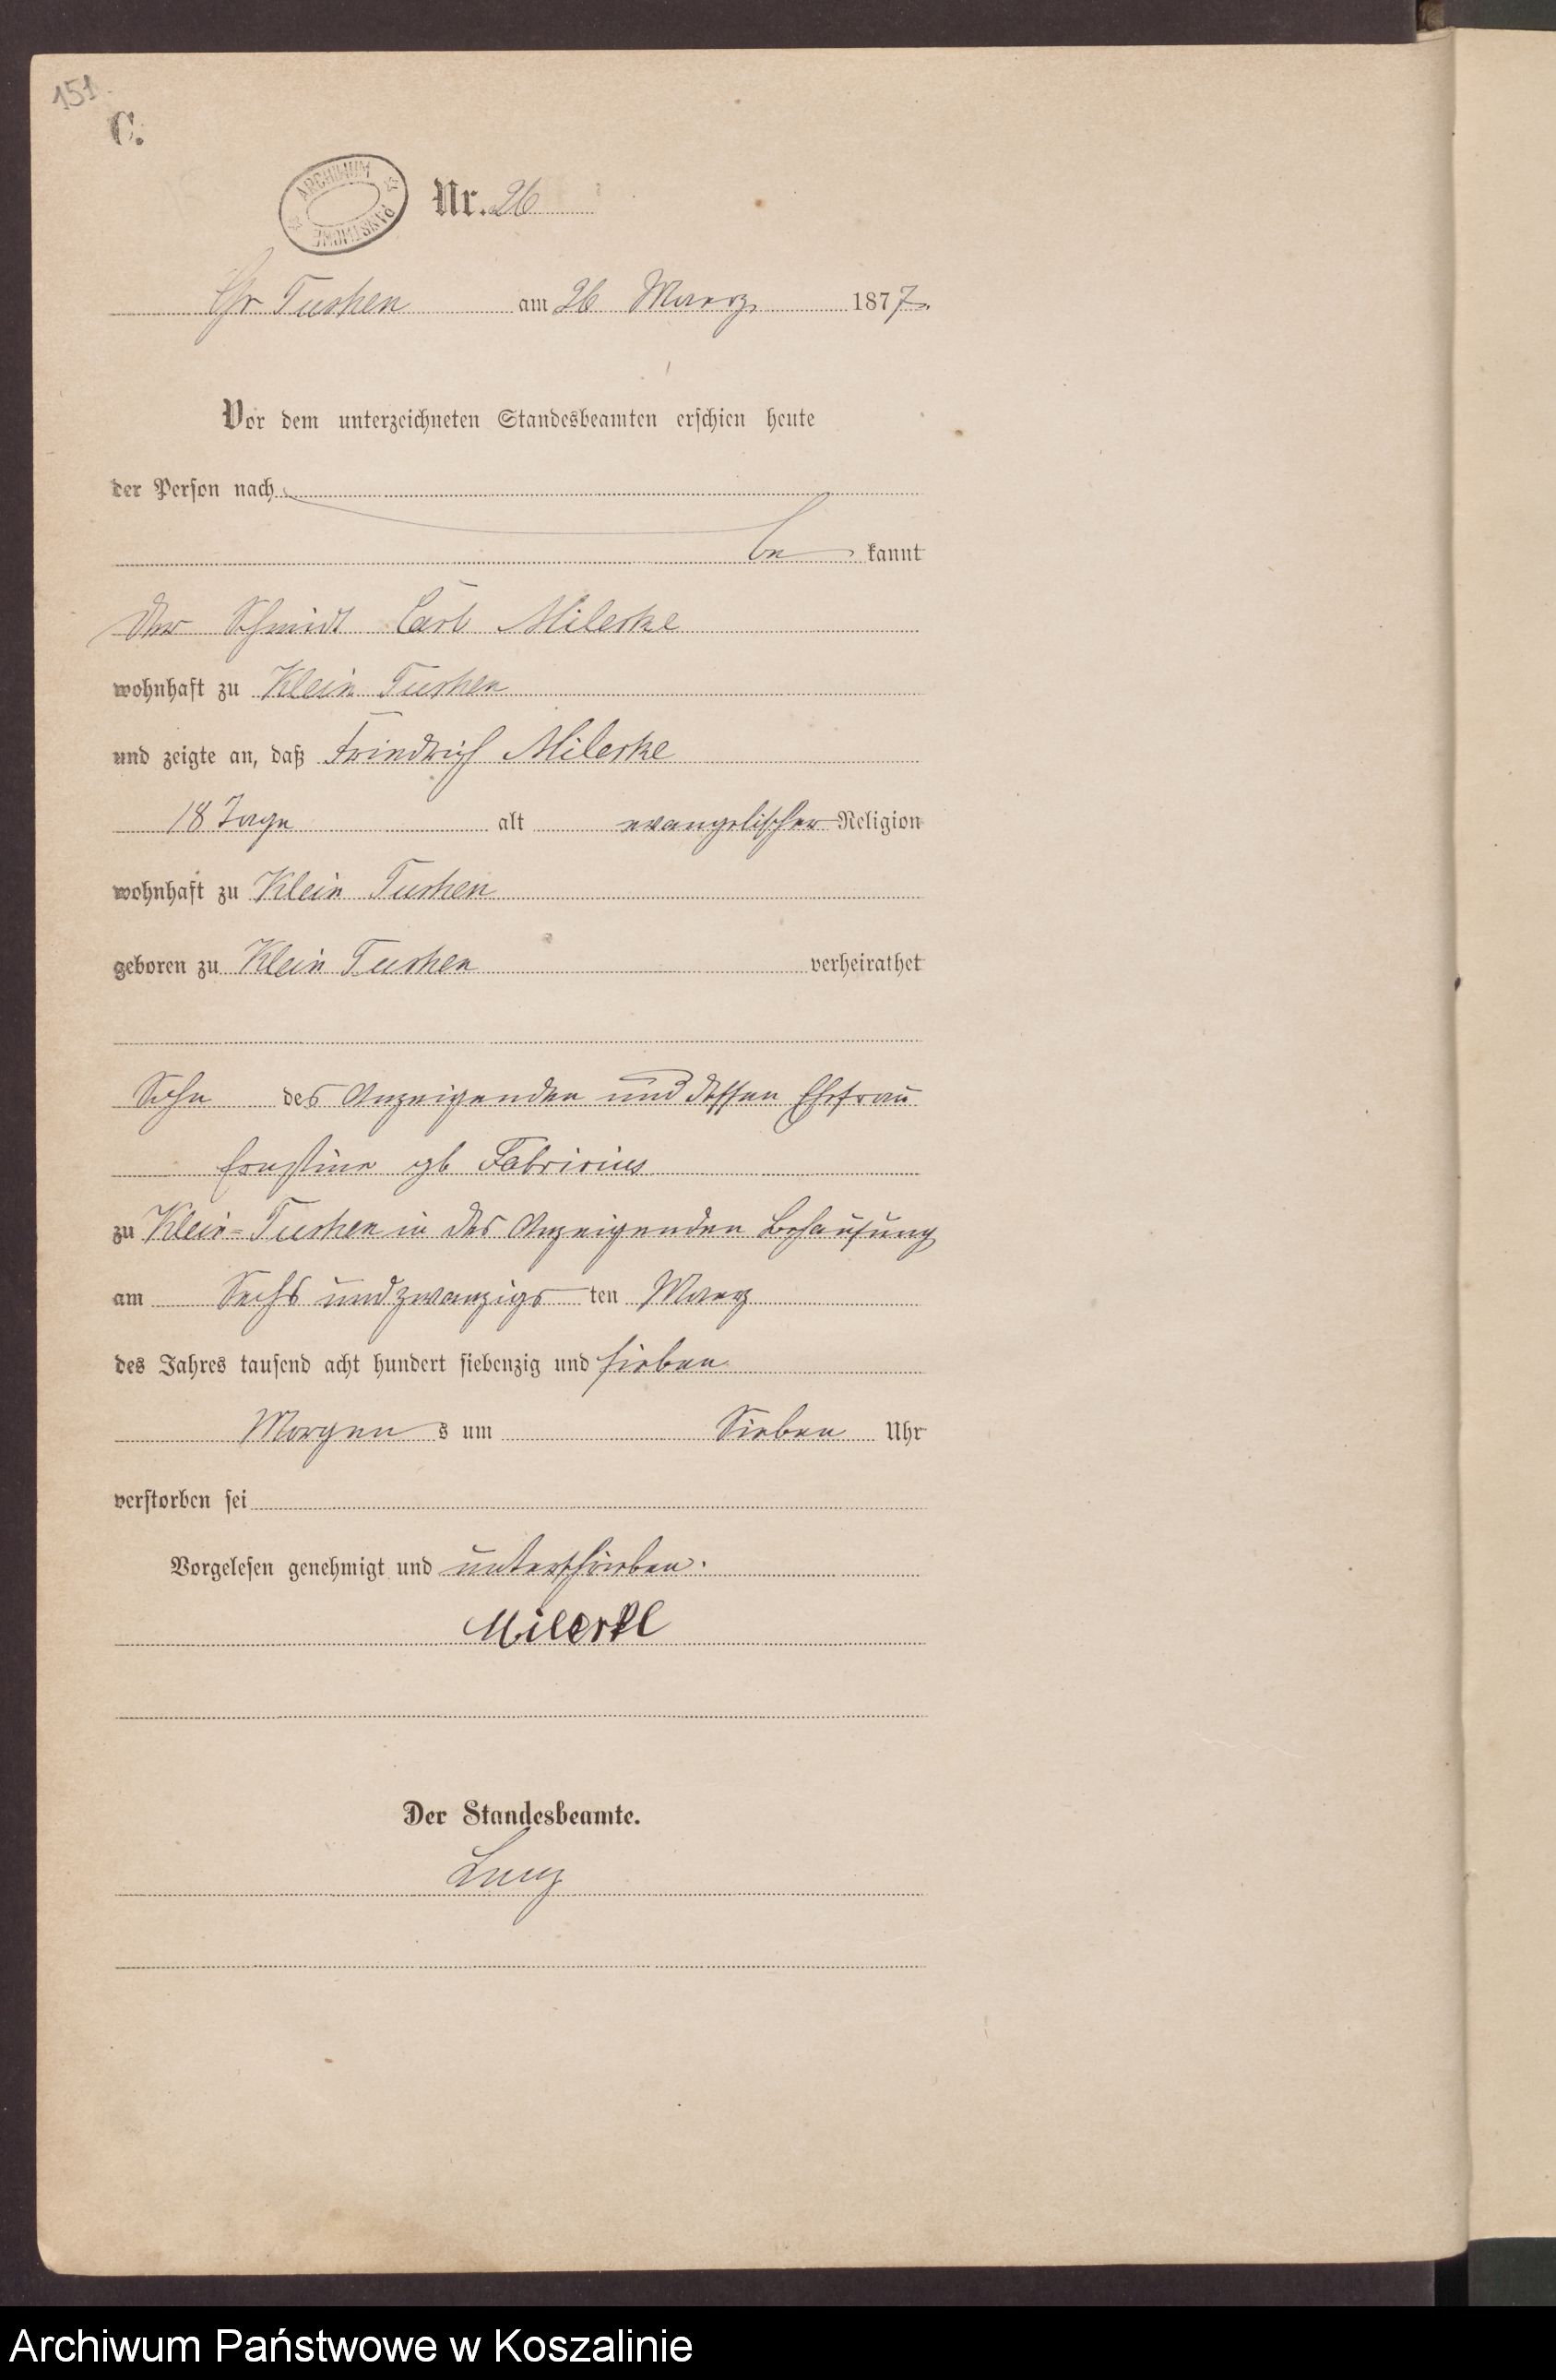 151.
C.
ARCHIWUM PAŃSTWOWE
Nr. 26
Gr Tuchen am 26 Maerz 1877.
Vor dem unterzeichneten Standesbeamten erschien heute
der Person nach
be kannt
der Schmidt Carl Mileske
wohnhaft zu Klein Tuchen
und zeigte an, daß Friedrich Mileske
18 Tage alt evangelischer Religion
wohnhaft zu Klein Tuchen
geboren zu Klein Tuchen verheirathet
Sohn des Anzeigenden und dessen Ehefrau
Ernstine gb Fabricius
zu Klein-Tuchen in des Anzeigenden Behausung
am Sechs und zwanzigs ten Maerz
des Jahres tausend acht hundert siebenzig und sieben
Morgen s um Sieben Uhr
verstorben sei
Vorgelesen genehmigt und unterschrieben.
Mileske
Der Standesbeamte.
Archiwum Państwowe w Koszalinie